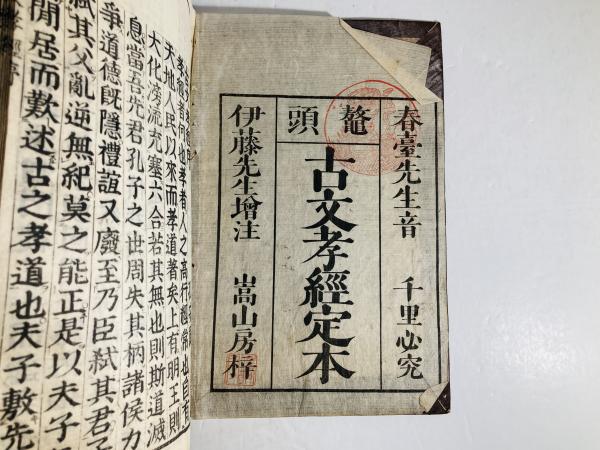 春臺先生音 千里必究
鼇頭
古文孝經定本
伊藤先生增注 嵩山房梓
孝經者何也孝者人之高行經常也自有
天地人民以來而孝道著矣上有明王則
大化滂流充塞六合若其無也則斯道滅
息當吾先君孔子之世周失其柄諸侯力
爭道德既隱禮誼又廢至乃臣弒其君子
弒其父亂逆無紀莫之能正是以夫子
閒居而歎述古之孝道也夫子敷先